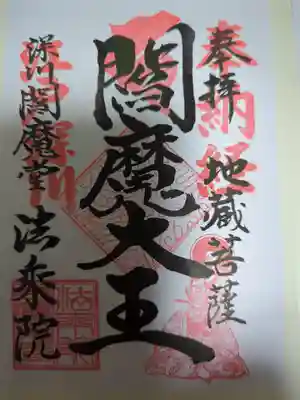 奉拝 地蔵菩薩
閻魔大王
深川閻魔堂 法乗院
奉納経